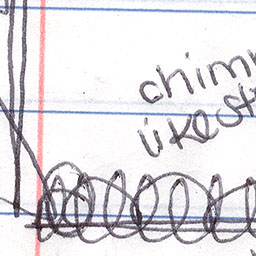 chim
like st